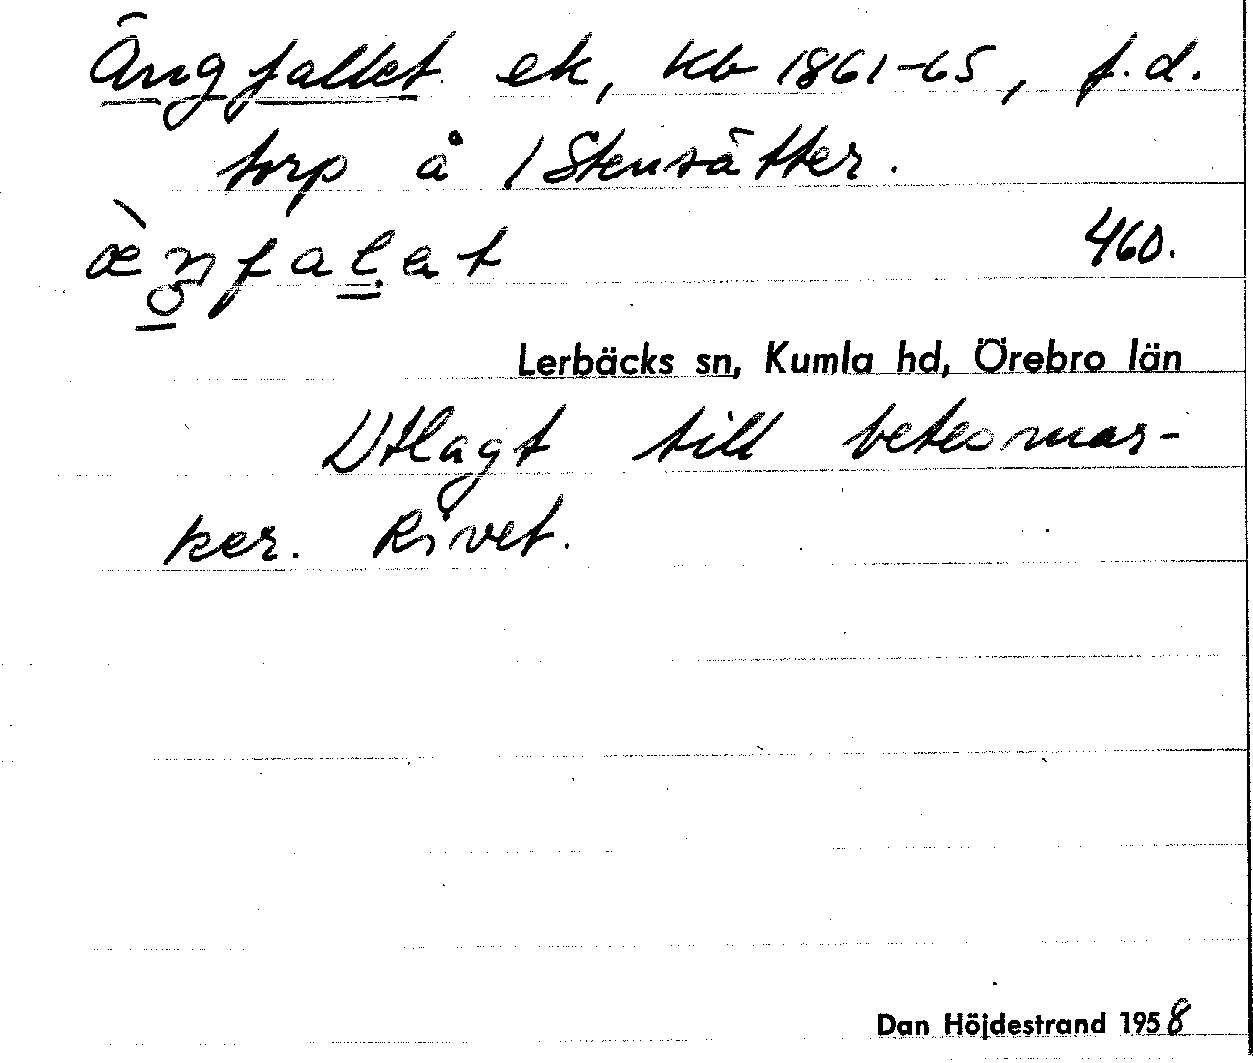 Ängfallet ek, kb 1861-65, f.d.
torp å 1 Stensätter.
æ̀ŋfalat
460.
Lerbäcks sn, Kumla hd, Örebro län
Utlagt till betesmar-
ker. Rivet.
Dan Höjdestrand 1958